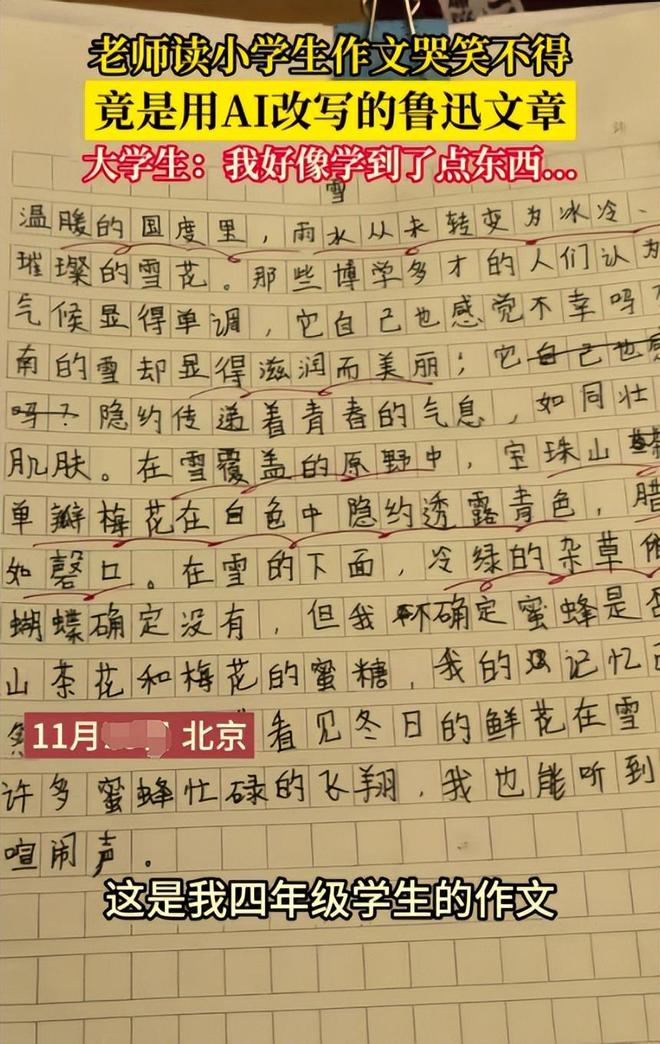 老师读小学生作文哭笑不得
竟是用AI改写的鲁迅文章
大学生：我好像学到了点东西...
雪
温暖的国度里，雨水从未转变为冰冷、
璀璨的雪花。那些博学多才的人们认为
气候显得单调，它自己也感觉不幸吗？
南的雪却显得滋润而美丽；它自己也感
吗？隐约传递着青春的气息，如同壮
肌肤。在雪覆盖的原野中，宝珠山茶
单瓣梅花在白色中隐约透露青色，腊
如磬口。在雪的下面，冷绿的杂草
蝴蝶确定没有，但我不确定蜜蜂是否
山茶花和梅花的蜜糖，我的记忆
11月 北京
看见冬日的鲜花在雪
许多蜜蜂忙碌的飞翔，我也能听到
喧闹声。
这是我四年级学生的作文